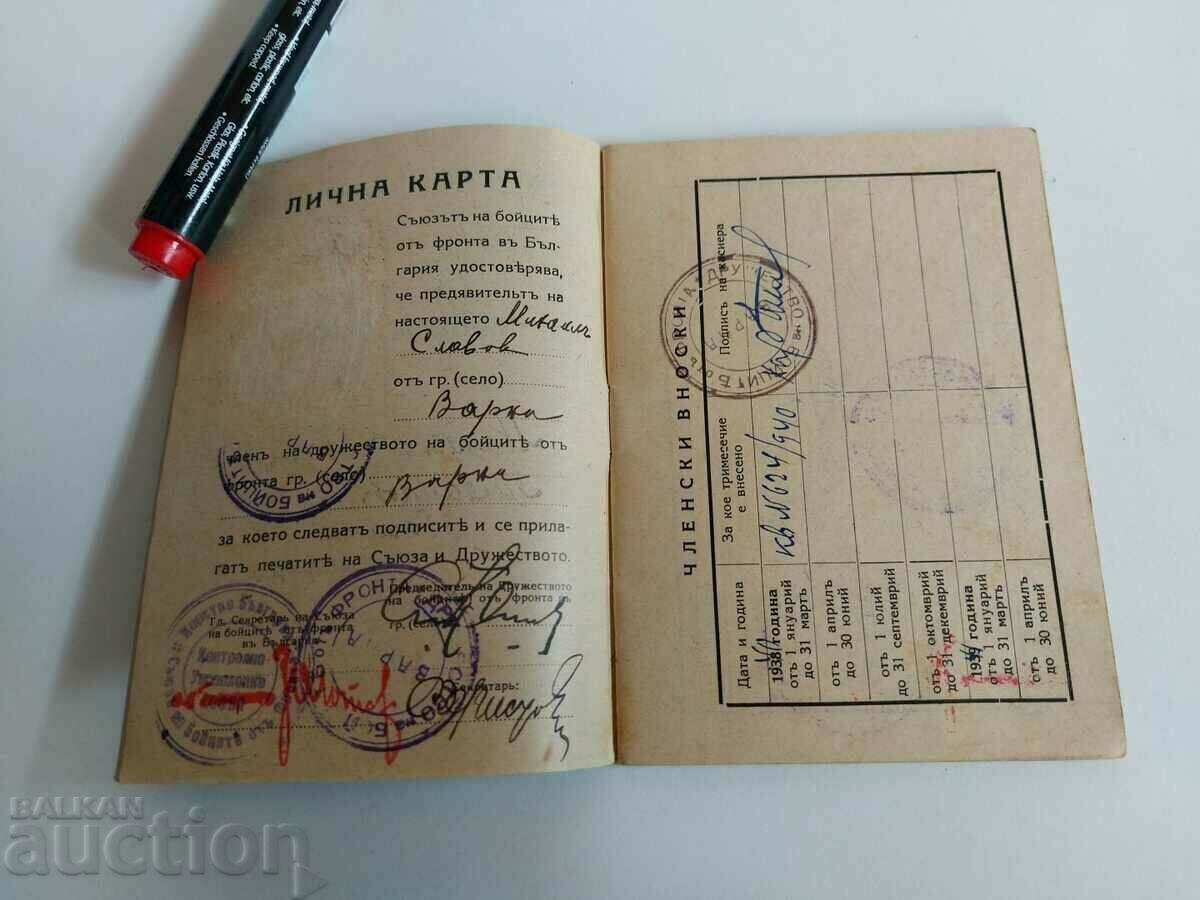 • Keep capped.
glass, plastic, carton, etc.
Glas, Plastik, Karton, usw.
• Geschlossen halten.
ЛИЧНА КАРТА
Съюзътъ на бойцитѣ
отъ фронта въ Бъл-
гария удостовѣрява,
че предявительтъ на
настоящето Михаилъ
Славов
отъ гр. (село)
Варна
членъ на дружеството на бойцитѣ отъ
фронта гр. (село) Варна
за което следватъ подписитѣ и се прила-
гатъ печатитѣ на Съюза и Дружеството.
Гл. Секретарь на Съюза
на бойцитѣ отъ фронта
въ България
Председатель на Дружеството
на бойцитѣ отъ фронта въ
гр. (село)
Секретарь:
Контролно
ЧЛЕНСКИ ВНОСКИ
Дата и година
За кое тримесечие
е внесено
Подпись на касиера
1938 година
отъ 1 януарий
до 31 мартъ
кв № 624/940
отъ 1 априлъ
до 30 юний
отъ 1 юлий
до 31 септемврий
отъ 1 октомврий
до 31 декемврий
1939 година
отъ 1 януарий
до 31 мартъ
отъ 1 априлъ
до 30 юний
BALKAN
auction